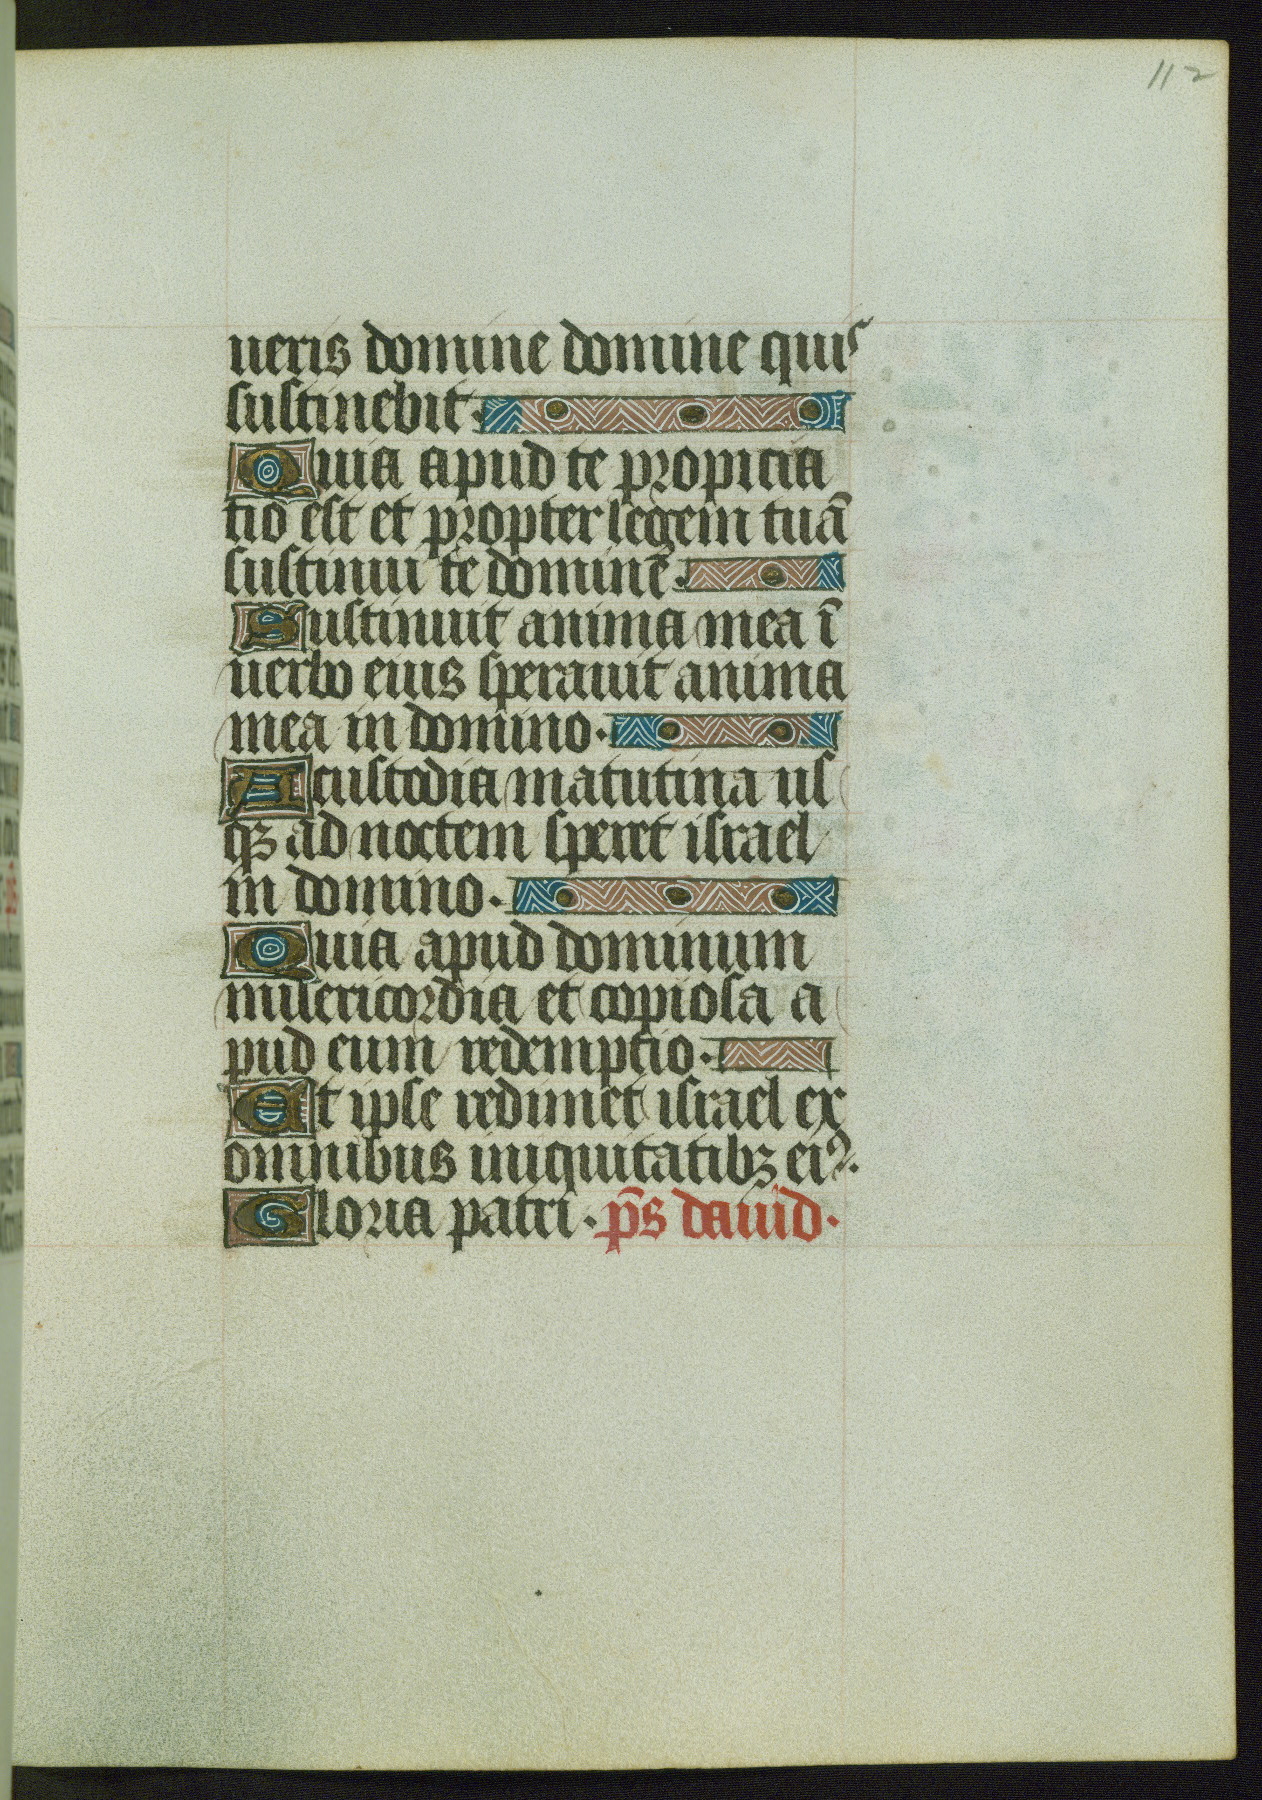 112
ueris domine domine quis
sustinebit.
Quia apud te propicia
tio est et propter legem tuā
sustinui te dominē.
Sustinuit anima mea ī
uerbo eius sperauit anima
mea in domino.
A custodia matutina us
qꝫ ad noctem speret israel
in domino.
Quia apud dominum
misericordia et copiosa a
pud eum redemptio.
Et ipse redimet israel ex
omnibus iniquitatibꝫ eiꝰ.
Gloria patri. p̄s dauid.